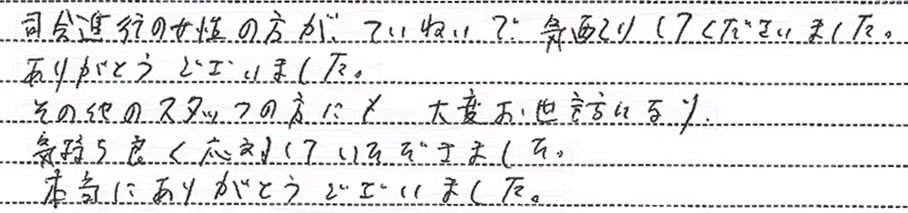 司会進行の女性の方が、ていねいで、気配りしてくださいました。
ありがとうございました。
その他のスタッフの方にも 大変お世話になり、
気持ち良く応対していただきました。
本当にありがとうございました。